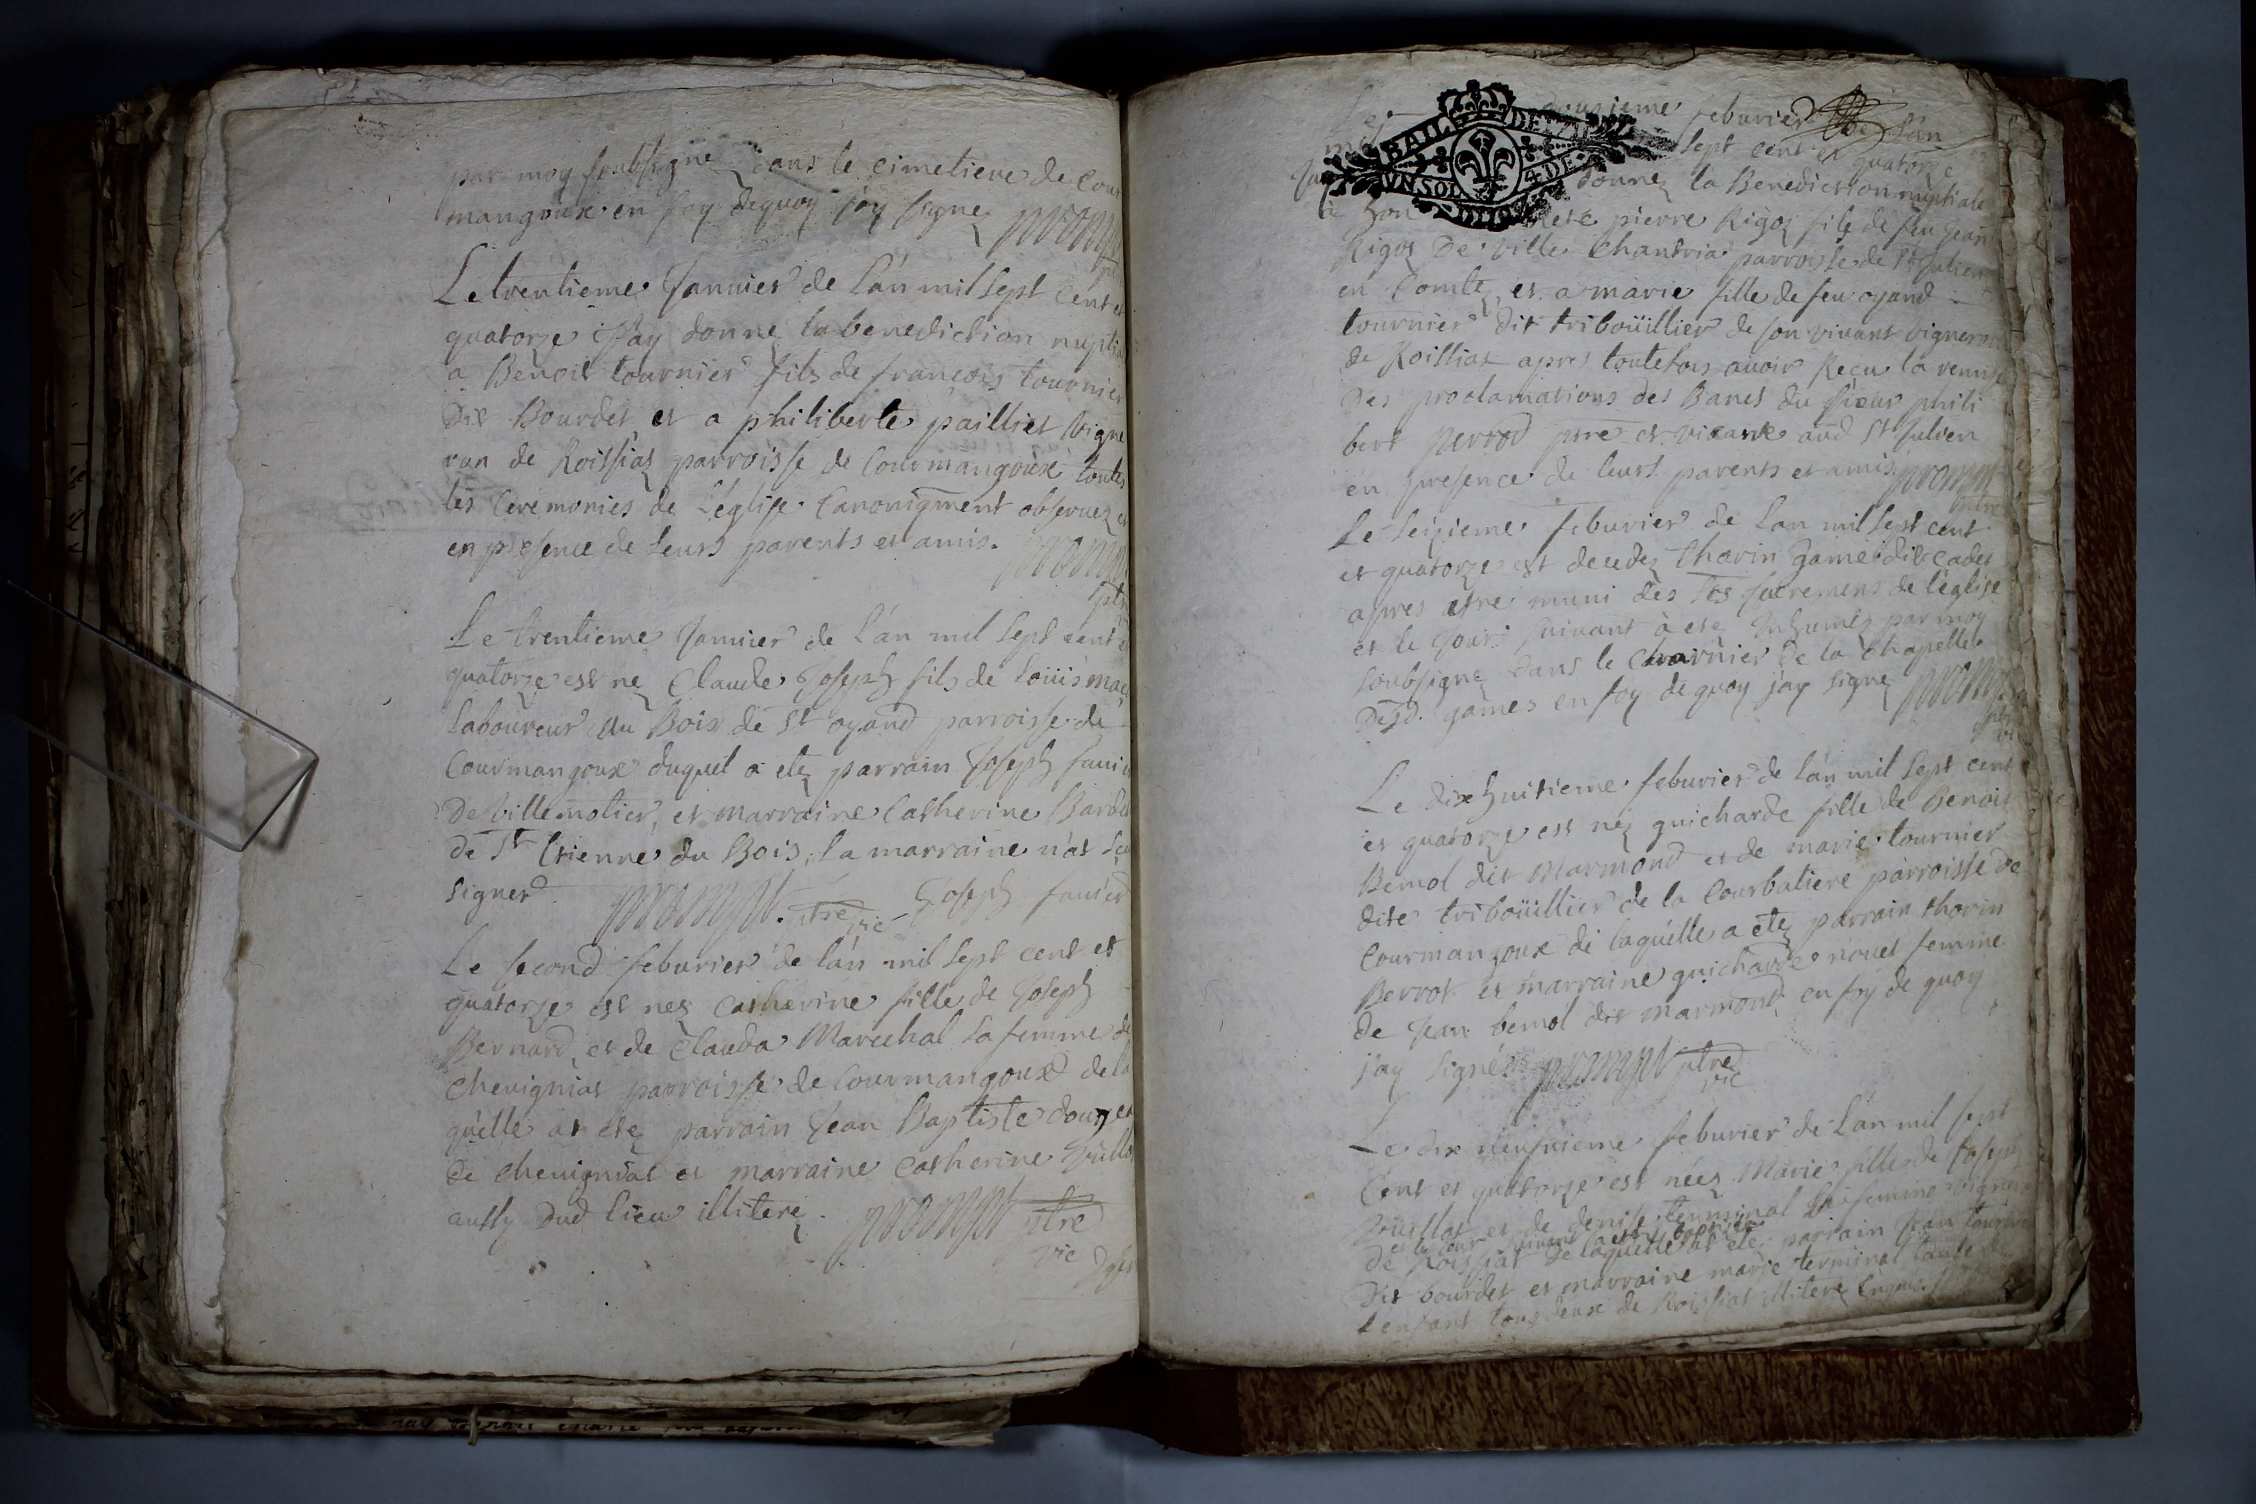 par moy soubsigne dans le cimetiere de Cour
mangoux en foy dequoy j'ay signe promps
Le trentieme Januier de L'an mil sept cent et
quatorze J'ay donne la benediction nuptia
a Benoit tournier fils de francois tournier
dit Bourdet et a philiberte paillier vigne
ron de Roissiat parroisse de Courmangoux toutes
les Ceremonies de L'eglise Canoniqment obseruez et
en presence de leurs parents et amis.
ptre
Le trentieme Januier de L'an mil sept cent et
quatorze est ne Claude Joseph fils de Loüis
Laboureur du Bois de St oyand parroisse de
Courmangoux duquel a ete parrain Joseph fauier
de Villemotier, et marraine Catherine
de St Etienne du Bois, la marraine n'at sceu
signer. ptre vic Joseph fauier
Le second feburier de l'an mil sept cent et
quatorze est nez Catherine fille de Joseph
Bernard et de Clauda Marechal sa femme de
Cheuignat parroisse de Courmangoux de la
quelle at ete parrain Jean Baptiste
de Cheuignat et marraine Catherine
aussy dud lieu illitere. ptre
vic
feburier de L'an
sept cent et quatorze
donne la Benediction nuptiale
a hon pierre Rigoz fils de feu Jean
Rigoz De Ville Chantria parroisse de St Julien
en Comte, et a marie fille de feu oyand
tournier dit triboüillier de son viuant vigneron
de Roissiat apres toutefois auoir Recu la remise
Des proclamations des Bancs du sieur phili
bert perrod ptre et vicaire aud St Julien
en presence de leurs parents et amis
Le seizieme feburier de Lan mil sept cent
et quatorze est decedez thorin game dit cadet
apres etre muni des Sts sacremens de l'eglise
et le jour suivant à ete Inhumez par moy
soubsigne dans le charnier de la chapelle
Desd. games en foy de quoy j'ay signe
Le dix huitieme feburier de L'an mil sept cent
et quatorze est nez guicharde fille de Benoit
Bemol dit Marmond et de marie tournier
dite triboüillier de la Courbatiere parroisse de
Courmangoux de laquelle a ete parrain thorin
Berrot et marraine guicharde nouet femme
de Jean bemol dit marmond, en foy de quoy
j'ay signé ptre
vic
Le dix neufuieme feburier de L'an mil sept
Cent et quatorze est néez Marie fille de Joseph
et de denise terminal sa femme
et le jour suivant
de Roissiat De laquelle at ete parrain Jean tournier
dit bourdet et marraine marie terminal tante de
L'enfant tous deux de Roissiat illitere
BAIL DE
UN SOL 4 DE
DIJON